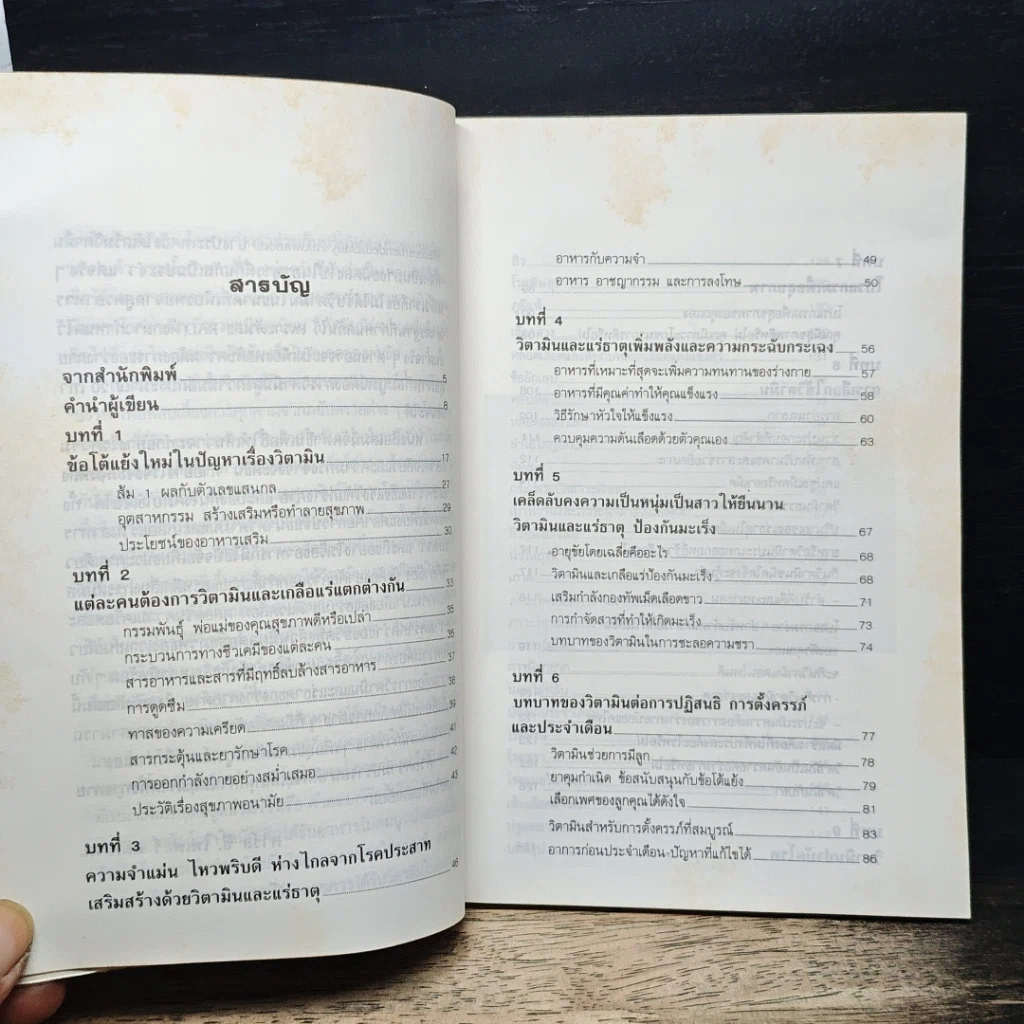 สารบัญ
จากสำนักพิมพ์ 5
คำนำผู้เขียน 8
บทที่ 1
ข้อโต้แย้งใหม่ในปัญหาเรื่องวิตามิน 17
ส้ม 1 ผลกับตัวเลขแสนกล 27
อุตสาหกรรม สร้างเสริมหรือทำลายสุขภาพ 29
ประโยชน์ของอาหารเสริม 30
บทที่ 2
แต่ละคนต้องการวิตามินและเกลือแร่แตกต่างกัน 33
กรรมพันธุ์ พ่อแม่ของคุณสุขภาพดีหรือเปล่า 35
กระบวนการทางชีวเคมีของแต่ละคน 35
สารอาหารและสารที่มีฤทธิ์ลบล้างสารอาหาร 37
การดูดซึม 38
ทาสของความเครียด 39
สารกระตุ้นและยารักษาโรค 41
การออกกำลังกายอย่างสม่ำเสมอ 42
ประวัติเรื่องสุขภาพอนามัย 43
บทที่ 3
ความจำแม่น ไหวพริบดี ห่างไกลจากโรคประสาท
เสริมสร้างด้วยวิตามินและแร่ธาตุ 46
อาหารกับความจำ 49
อาหาร อาชญากรรม และการลงโทษ 50
บทที่ 4
วิตามินและแร่ธาตุเพิ่มพลังและความกระฉับกระเฉง 56
อาหารที่เหมาะที่สุดจะเพิ่มความทนทานของร่างกาย 57
อาหารที่มีคุณค่าทำให้คุณแข็งแรง 58
วิธีรักษาหัวใจให้แข็งแรง 60
ควบคุมความดันเลือดด้วยตัวคุณเอง 63
บทที่ 5
เคล็ดลับคงความเป็นหนุ่มเป็นสาวให้ยืนนาน
วิตามินและแร่ธาตุ ป้องกันมะเร็ง 67
อายุขัยโดยเฉลี่ยคืออะไร 68
วิตามินและเกลือแร่ป้องกันมะเร็ง 68
เสริมกำลังกองทัพเม็ดเลือดขาว 71
การกำจัดสารที่ทำให้เกิดมะเร็ง 73
บทบาทของวิตามินในการชะลอความชรา 74
บทที่ 6
บทบาทของวิตามินต่อการปฏิสนธิ การตั้งครรภ์
และประจำเดือน 77
วิตามินช่วยการมีลูก 78
ยาคุมกำเนิด ข้อสนับสนุนกับข้อโต้แย้ง 79
เลือกเพศของลูกคุณได้ดังใจ 81
วิตามินสำหรับการตั้งครรภ์ที่สมบูรณ์ 83
อาการก่อนประจำเดือน-ปัญหาที่แก้ไขได้ 86